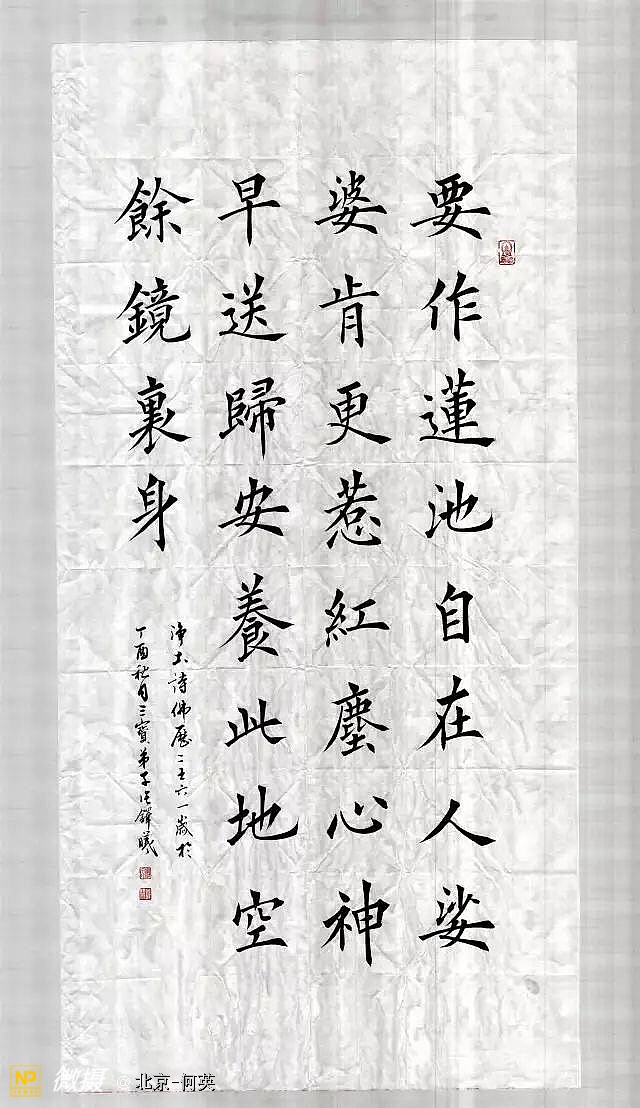 要作蓮池自在人娑
婆肯更惹紅塵心神
早送歸安養此地空
餘鏡裏身
淨土詩佛歷二五六一歲於
丁酉秋月三寶弟子鐸曦
NP 微摄 @北京-何英